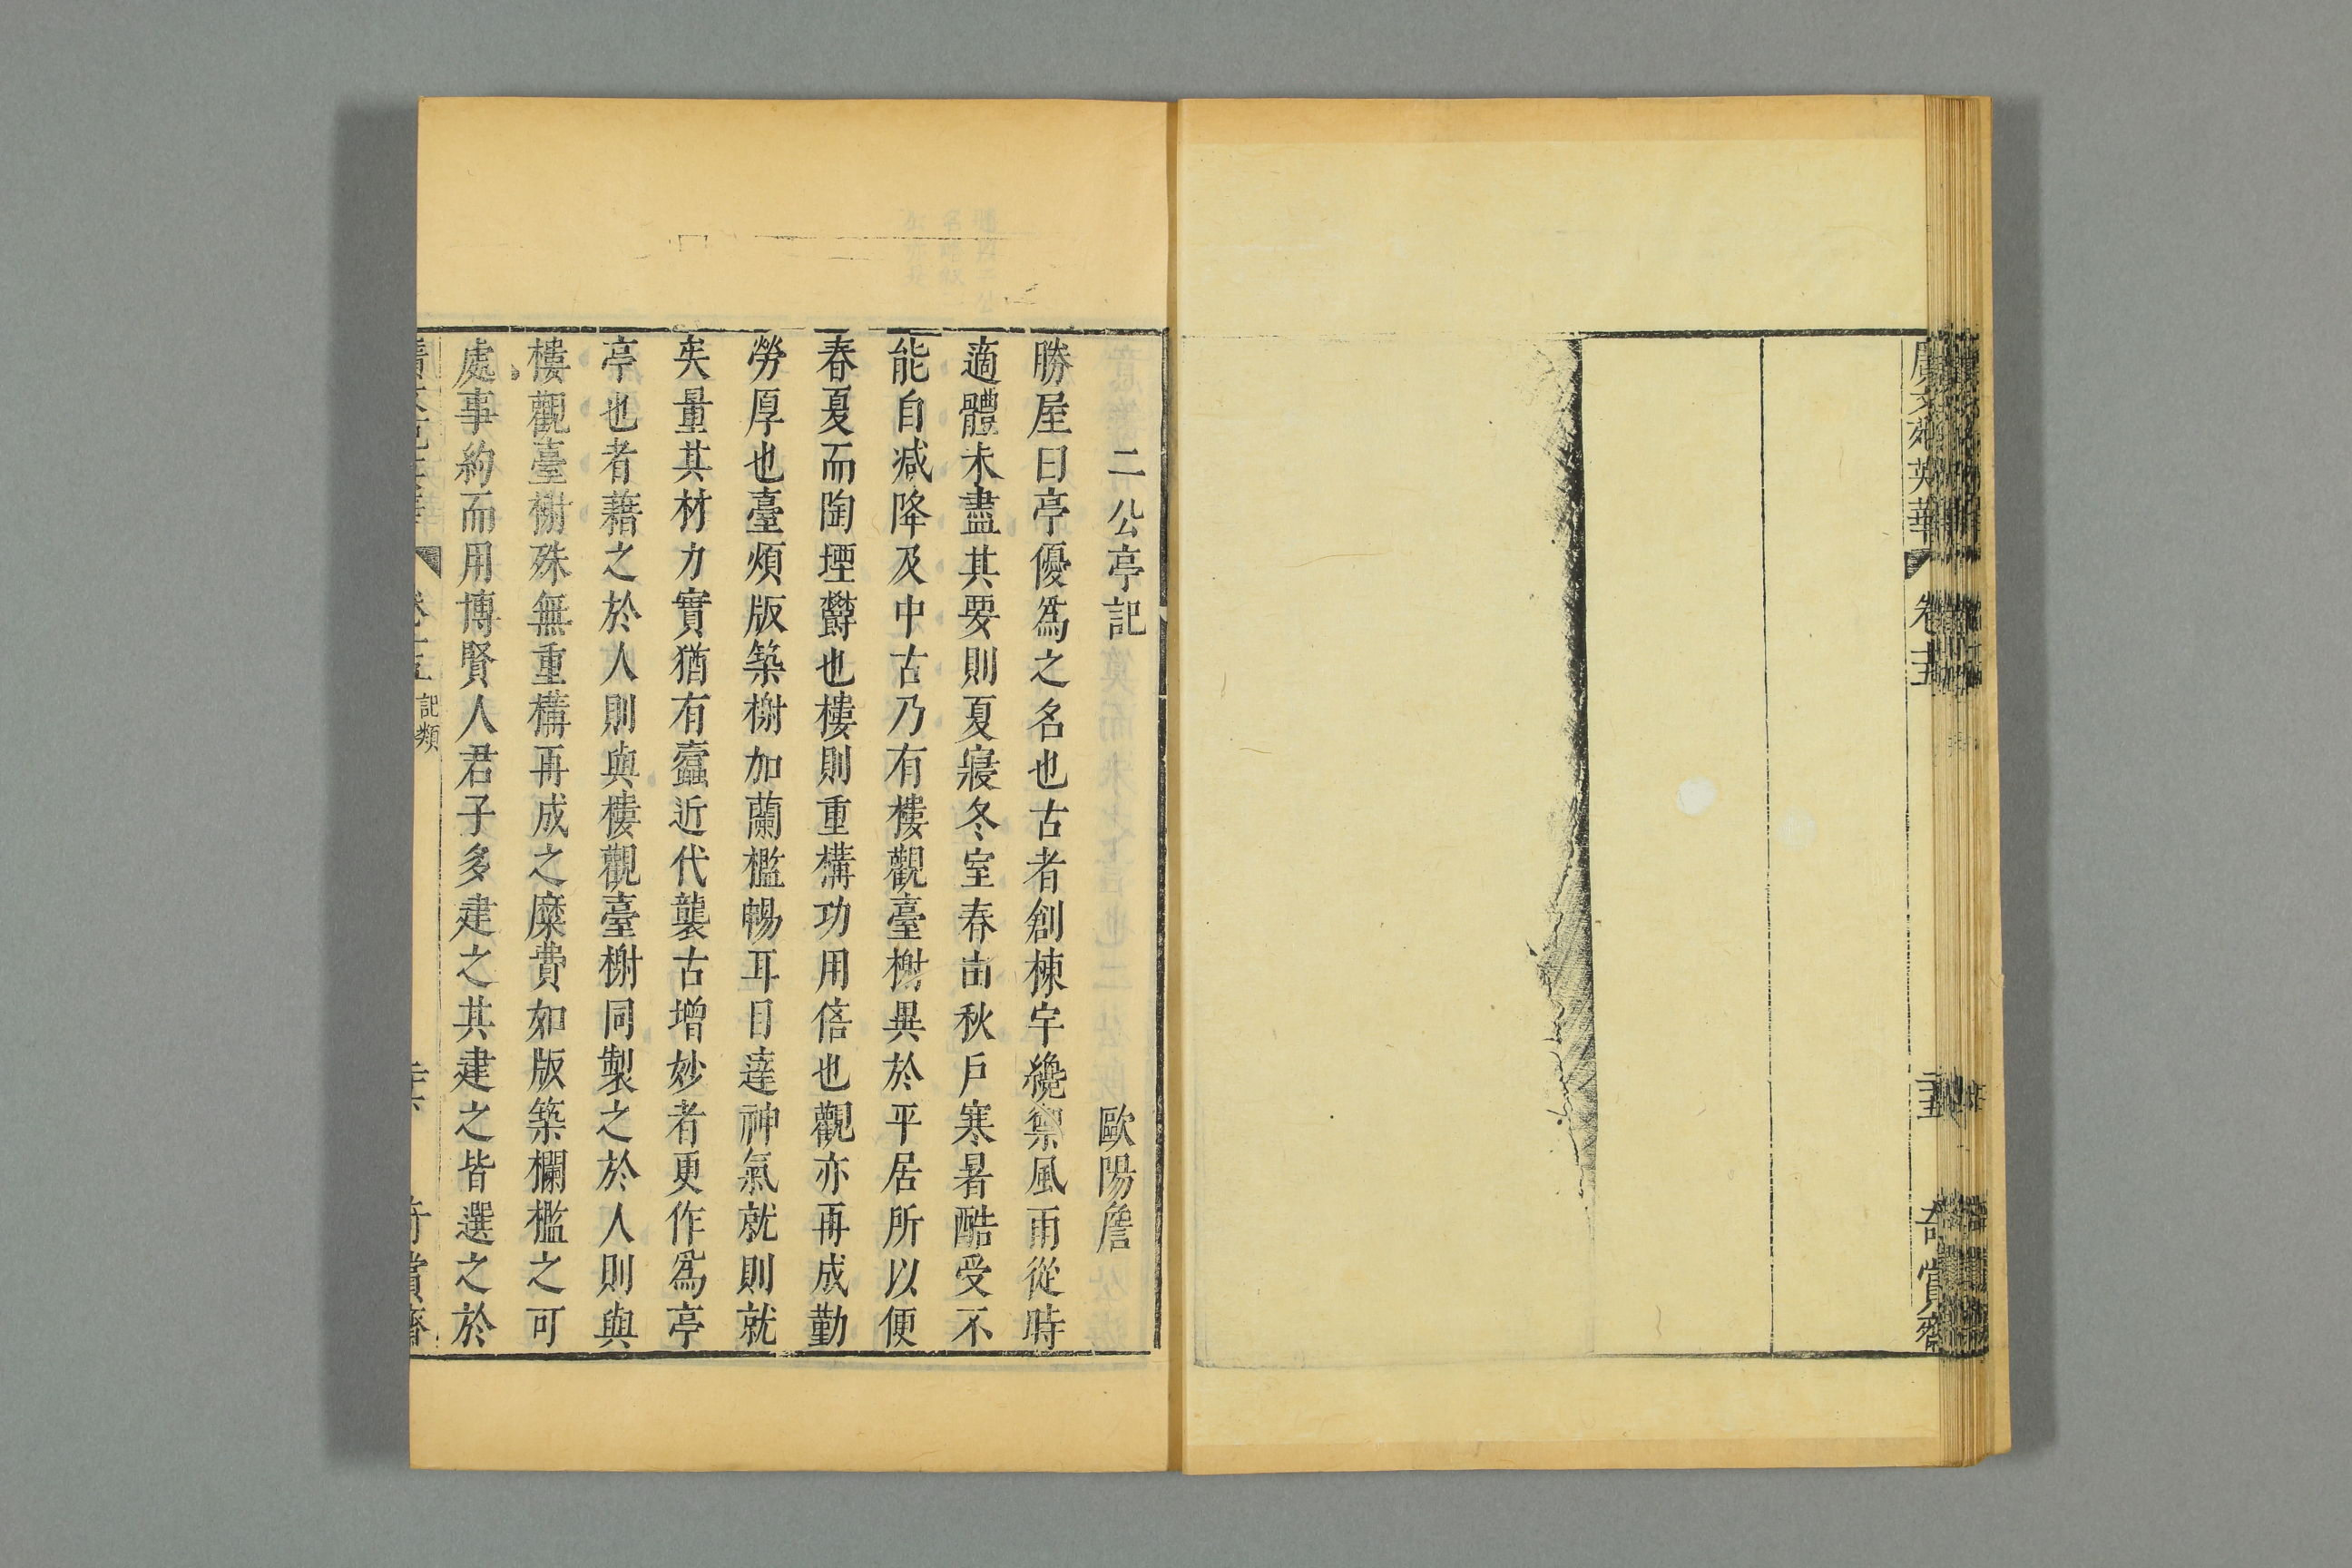 廣文苑英華
卷十五
二十五
奇賞齋
二公亭記 歐陽詹
勝屋曰亭優爲之名也古者創棟宇纔禦風雨從時
適體未盡其要則夏寢冬室春牖秋戶寒暑酷受不
能自減降及中古乃有樓觀臺榭異於平居所以便
春夏而陶堙欝也樓則重構功用倍也觀亦再成勤
勞厚也臺煩版築榭加蘭檻暢耳目達神氣就則就
矣量其材力實猶有蠹近代襲古增妙者更作爲亭
亭也者藉之於人則與樓觀臺榭同製之於人則與
樓觀臺榭殊無重構再成之糜費如版築欄檻之可
處事約而用博賢人君子多建之其建之皆選之於
記類
奇賞齋